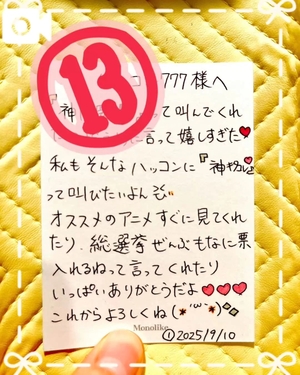 ⑬
777様へ
『神
って叫んでくれ
言って嬉しすぎた♥
私もそんなハッコンに『神
って叫びたいよん
オススメのアニメすぐに見てくれ
たり、総選挙ぜんぶもなに票
入れるねって言ってくれたり
いっぱいありがとうだよ♥♥♥
これからよろしくね(*'ω'*)
Monolike
①2025/9/10